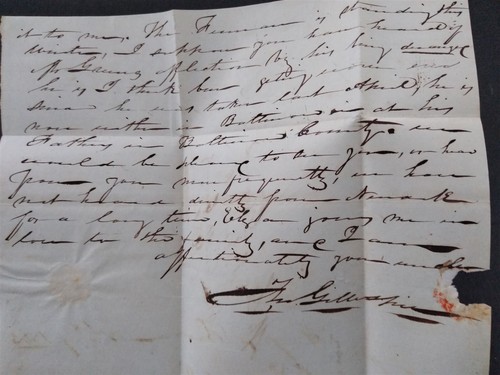 it to me, The Furnace is standing this
winter, I suppose you have heard of
Mr affliction by his being deranged
he is I think been getting worse ever
since he was taken last April, he is
now either in Baltimore or at his
Fathers in Baltimore County. we
would be pleased to see you, or hear
from you more frequently, we have
not heard directly from Newark
for a long time, joins me in
love to the family, and I am
affectionately your brother
Gillespie